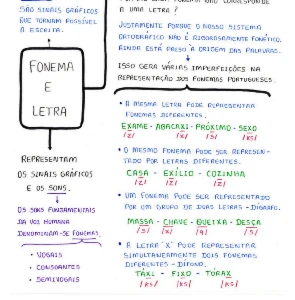 SÃO SINAIS GRÁFICOS
QUE TORNAM POSSÍVEL
A ESCRITA.
FONEMA
E
LETRA
REPRESENTAM
OS SINAIS GRÁFICOS
E OS SONS.
OS SONS FUNDAMENTAIS
DA VOZ HUMANA
DENOMINAM-SE FONEMAS.
• VOGAIS
• CONSOANTES
• SEMIVOGAIS
A UMA LETRA?
JUSTAMENTE PORQUE O NOSSO SISTEMA
ORTOGRÁFICO NÃO É RIGOROSAMENTE FONÉTICO.
AINDA ESTÁ PRESO À ORIGEM DAS PALAVRAS.
ISSO GERA VÁRIAS IMPERFEIÇÕES NA
REPRESENTAÇÃO DOS FONEMAS PORTUGUESES.
• A MESMA LETRA PODE REPRESENTAR
FONEMAS DIFERENTES.
EXAME - ABACAXI - PRÓXIMO - SEXO
/z/ /ʃ/ /s/ /ks/
• O MESMO FONEMA PODE SER REPRESEN-
TADO POR LETRAS DIFERENTES.
CASA - EXÍLIO - COZINHA
/z/ /z/ /z/
• UM FONEMA PODE SER REPRESENTADO
POR UM GRUPO DE DUAS LETRAS - DÍGRAFO.
MASSA - CHAVE - QUEIXA - DESÇA
• A LETRA 'X' PODE REPRESENTAR
SIMULTANEAMENTE DOIS FONEMAS
DIFERENTES - DÍFONO.
TÁXI - FIXO - TÓRAX
/ks/ /ks/ /ks/